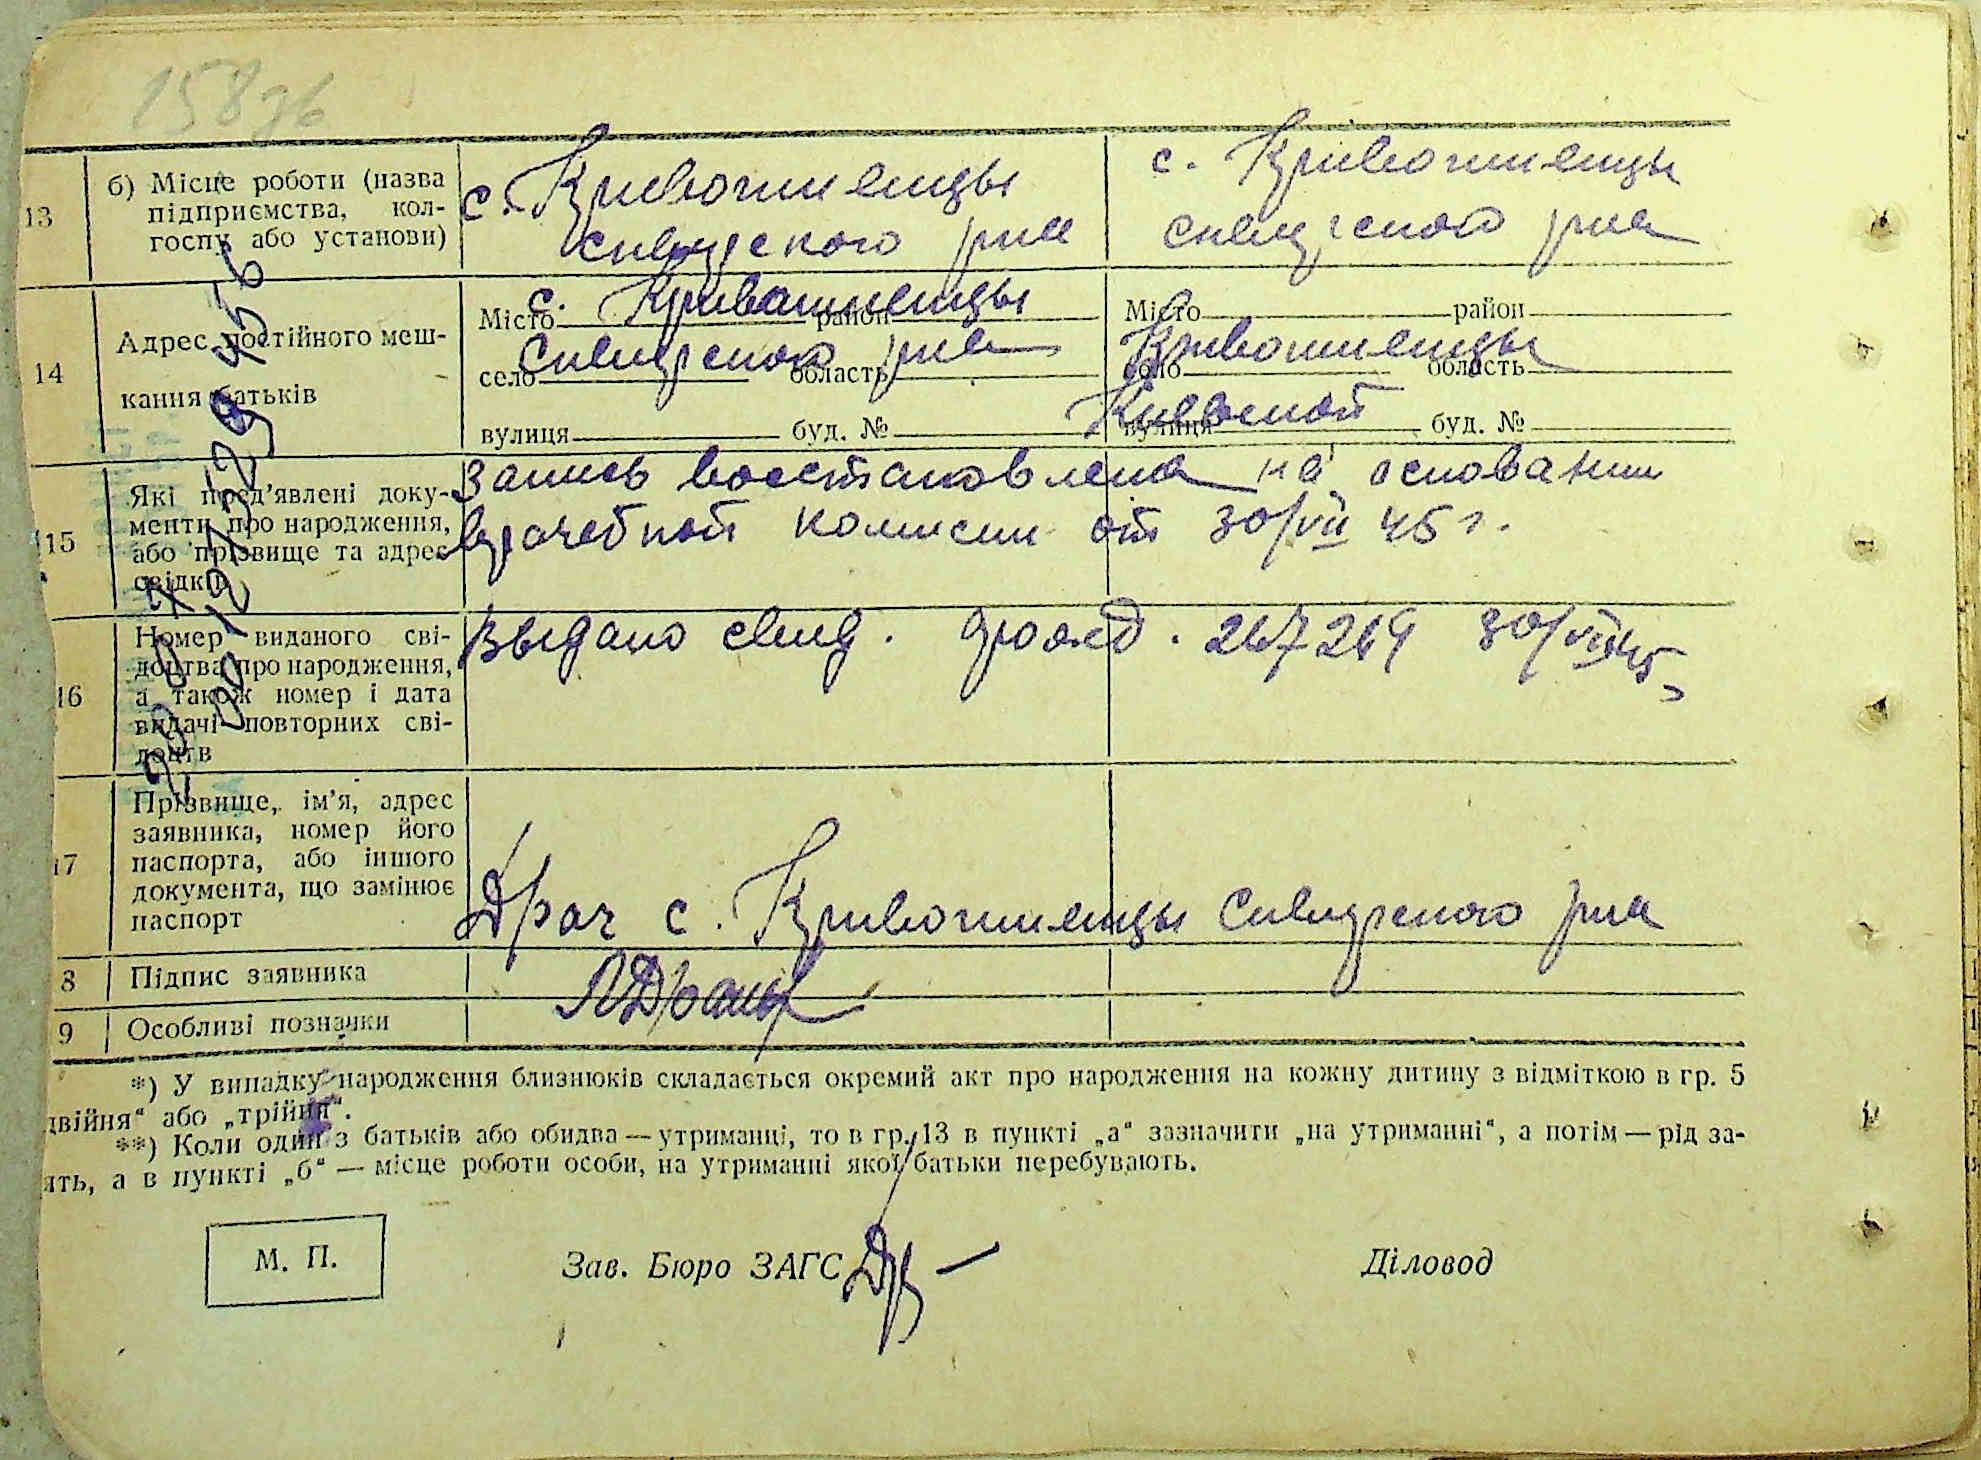 158зв
13
б) Місце роботи (назва
підприємства, кол-
госпу або установи)
с. Кривошиенцы
Сквирского р-на
с. Кривошиенцы
Сквирского р-на
14
Адрес постійного меш-
кання батьків
с. Кривошиенцы
Місто район
Сквирского р-на
село область
вулиця буд. №
Місто район
Кривошиенцы
село область
Киевской
вулиця буд. №
15
Які пред'явлені доку-
менти про народження,
або прізвище та адрес
свідків
Запись восстановлена на основании
врачебной комисии от 30/VII 45 г.
16
Номер виданого сві-
доцтва про народження,
а також номер і дата
видачі повторних сві-
доцтв
Выдано свид. 30/VII 45
17
Прізвище, ім'я, адрес
заявника, номер його
паспорта, або іншого
документа, що замінює
паспорт
Драч с. Кривошиенцы Сквирского р-на
8
Підпис заявника
9
Особливі позначки
*) У випадку народження близнюків складається окремий акт про народження на кожну дитину з відміткою в гр. 5
двійня" або „трійня".
**) Коли один з батьків або обидва — утриманці, то в гр. 13 в пункті „а" зазначити „на утриманні", а потім — рід за-
ять, а в пункті „б" — місце роботи особи, на утриманні якої батьки перебувають.
М. П.
Зав. Бюро ЗАГС
Діловод